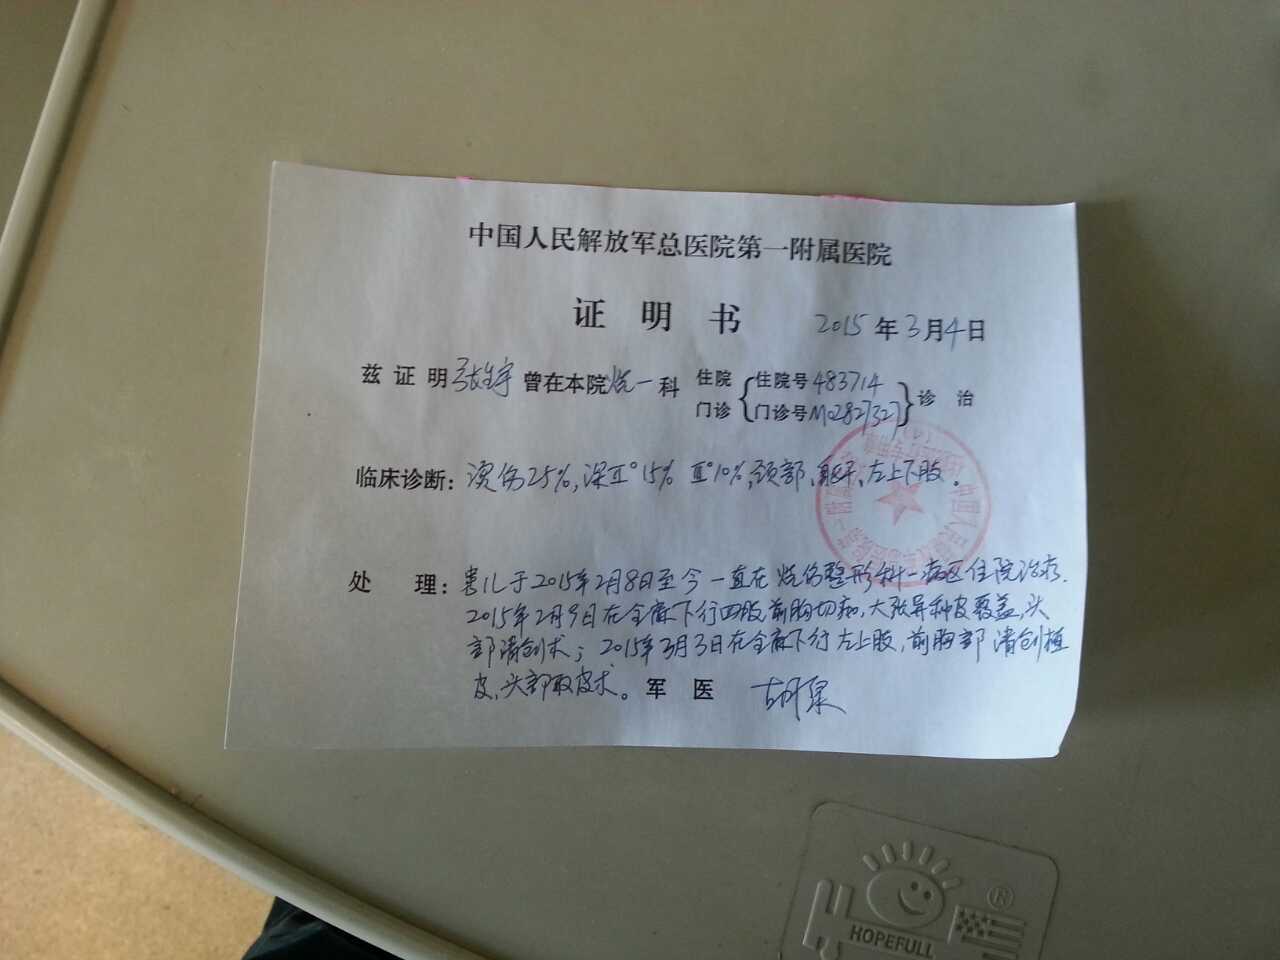 中国人民解放军总医院第一附属医院
证 明 书 2015年3月4日
兹证明 张宇 曾在本院烧一科 住院 门诊 { 住院号483714 门诊号M02827327 } 诊治
临床诊断：烫伤25%,深Ⅱ°15% Ⅲ°10%,颈部、躯干、左上下肢。
处 理：患儿于2015年2月8日至今一直在烧伤整形科一病区住院治疗.
2015年2月9日在全麻下行四肢前胸切痂,大张异种皮覆盖,头
部清创术；2015年3月3日在全麻下行左上肢,前胸部清创植
皮,头部取皮术。军 医
HOPEFULL
®